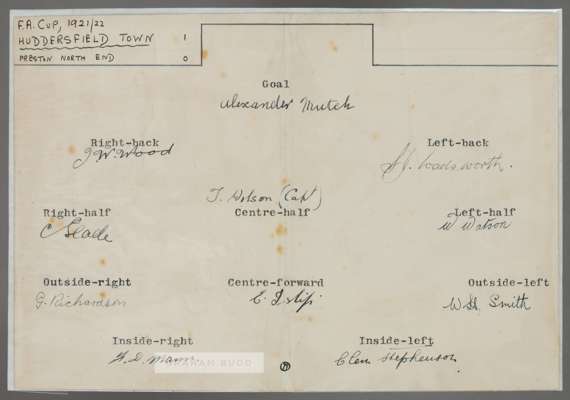 F.A. CUP, 1921/22
HUDDERSFIELD TOWN 1
PRESTON NORTH END 0
Goal
Alexander Mutch
Right-back
J W. Wood
Left-back
S J. Wadsworth.
T. Wilson (Capt)
Centre-half
Right-half
C Slade
Left-half
W Watson
Outside-right
G. Richardson
Centre-forward
E. Islip
Outside-left
W H. Smith
Inside-right
F. D. Mann.
Inside-left
Clem Stephenson.
GRAHAM BUDD